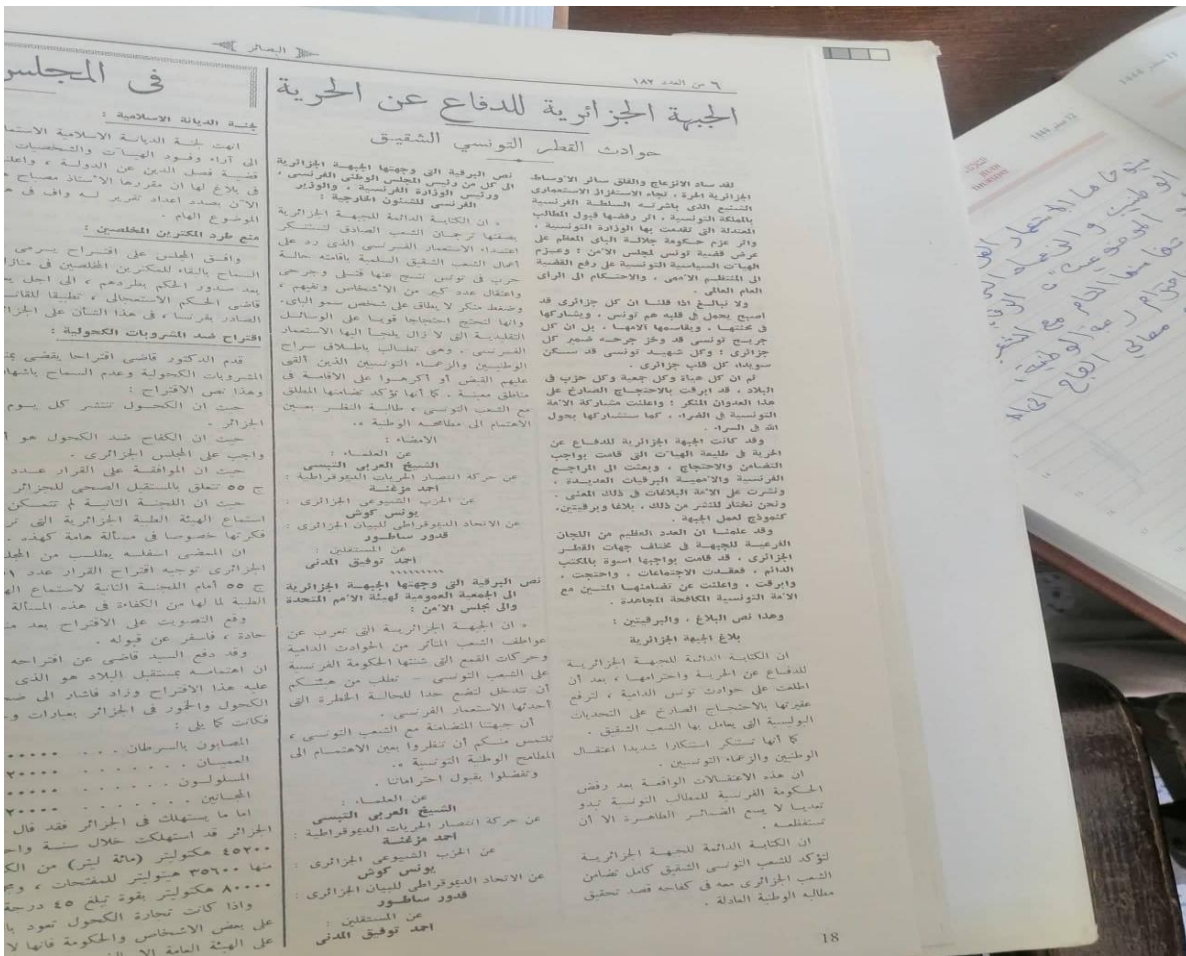 البصائر
٦ من العدد ١٨٢
الجبهة الجزائرية للدفاع عن الحرية
حوادث القطر التونسي الشقيق
لقد ساد الانزعاج والقلق سائر الاوساط
الجزائرية الحرة ، تجاه الاستفزاز الاستعمارى
الشنيع الذى باشرته السلطة الفرنسية
بالمملكة التونسية ، اثر رفضها قبول المطالب
المعتدلة التى تقدمت بها الوزارة التونسية ،
واثر عزم حكومة جلالة الباى المعظم على
عرض قضية تونس لمجلس الامن ؛ وعزم
الهيات السياسية التونسية على رفع القضية
الى المنتظم الاممى ، والاحتكام الى الراى
العام العالمى .
ولا نبالغ اذا قلنا ان كل جزائرى قد
اصبح يحمل فى قلبه هم تونس ، ويشاركها
فى محنتها ، ويقاسمها الامها ، بل ان كل
جريح تونسى قد وخز جرحه ضمير كل
جزائرى ؛ وكل شهيد تونسى قد سكن
سويداء كل قلب جزائرى .
ثم ان كل هياة وكل جمعية وكل حزب فى
البلاد ، قد ابرقت بالاحتجاج الصارخ على
هذا العدوان المنكر ؛ واعلنت مشاركة الامة
التونسية فى الضراء ، كما ستشاركها بحول
الله فى السراء .
وقد كانت الجبهة الجزائرية للدفاع عن
الحرية فى طليعة الهيات التى قامت بواجب
التضامن والاحتجاج ، وبعثت الى المراجع
الفرنسية والاممية البرقيات العديدة ،
ونشرت على الامة البلاغات فى ذلك المعنى .
ونحن نختار للنشر من ذلك ، بلاغا وبرقيتين،
كنموذج لعمل الجبهة .
وقد علمنا ان العدد العظيم من اللجان
الفرعية للجبهة فى مختلف جهات القطر
الجزائرى ، قد قامت بواجبها اسوة بالمكتب
الدائم ، فعقدت الاجتماعات ، واحتجت ،
وابرقت ، واعلنت عن تضامنها المتين مع
الامة التونسية المكافحة المجاهدة .
وهذا نص البلاغ ، والبرقيتين :
بلاغ الجبهة الجزائرية
ان الكتابة الدائمة للجبهة الجزائرية
للدفاع عن الحرية واحترامها ، بعد أن
اطلعت على حوادث تونس الدامية ، لترفع
عقيرتها بالاحتجاج الصارخ على التحديات
البوليسية التى يعامل بها الشعب الشقيق .
كما أنها تستنكر استنكارا شديدا اعتقال
الوطنيين والزعماء التونسيين .
ان هذه الاعتقالات الواقعة بعد رفض
الحكومة الفرنسية للمطالب التونسية تبدو
تعديا لا يسع الضمائر الطاهرة الا أن
تستفظعه .
ان الكتابة الدائمة للجبهة الجزائرية
لتؤكد للشعب التونسى الشقيق كامل تضامن
الشعب الجزائرى معه فى كفاحه قصد تحقيق
مطالبه الوطنية العادلة .
نص البرقية التى وجهتها الجبهة الجزائرية
الى كل من رئيس المجلس الوطنى الفرنسى ،
ورئيس الوزارة الفرنسية ، والوزير
الفرنسى للشئون الخارجية :
« ان الكتابة الدائمة للجبهة الجزائرية
بصفتها ترجمان الشعب الصادق لتستنكر
اعتداء الاستعمار الفرنسى الذى رد على
آمال الشعب الشقيق السلمية باقامته حالة
حرب فى تونس نتج عنها قتلى وجرحى
واعتقال عدد كبير من الاشخاص ونفيهم ،
وضغط منكر لا يطاق على شخص سمو الباى.
وانها لتحتج احتجاجا قويا على الوسائل
التقليدية التى لا زال يلجأ اليها الاستعمار
الفرنسى . وهى تطالب باطلاق سراح
الوطنيين والزعماء التونسيين الذين القى
عليهم القبض أو أكرهوا على الاقامة فى
مناطق معينة . كما أنها تؤكد تضامنها المطلق
مع الشعب التونسى ، طالبة النظر بعين
الاهتمام الى مطامحه الوطنية ».
الامضاء :
عن العلماء :
الشيخ العربى التبسى
عن حركة انتصار الحريات الديموقراطية :
احمد مزغنة
عن الحزب الشيوعى الجزائرى :
يونس كوش
عن الاتحاد الديموقراطى للبيان الجزائرى :
قدور ساطور
عن المستقلين :
احمد توفيق المدنى
نص البرقية التى وجهتها الجبهة الجزائرية
الى الجمعية العمومية لهيئة الامم المتحدة
والى مجلس الامن :
« ان الجبهة الجزائرية التى تعرب عن
عواطف الشعب المتأثر من الحوادث الدامية
وحركات القمع التى شنتها الحكومة الفرنسية
على الشعب التونسى - تطلب من هيئتكم
أن تتدخل لتضع حدا للحالة الخطرة التى
أحدثها الاستعمار الفرنسى .
أن جبهتنا المتضامنة مع الشعب التونسى ،
تلتمس منكم أن تنظروا بعين الاهتمام الى
المطامح الوطنية التونسية ».
وتفضلوا بقبول احتراماتنا .
عن العلماء :
الشيخ العربى التبسى
عن حركة انتصار الحريات الديموقراطية :
احمد مزغنة
عن الحزب الشيوعى الجزائرى :
يونس كوش
عن الاتحاد الديموقراطى للبيان الجزائرى :
قدور ساطور
عن المستقلين :
احمد توفيق المدنى
فى المجلس
لجنة الديانة الاسلامية :
انهت لجنة الديانة الاسلامية
الى آراء وفود الهيآت والشخصيات
قضية فصل الدين عن الدولة ،
فى بلاغ لها ان مقررها الاستاذ مصباح
الآن بصدد اعداد تقرير له واف فى
الموضوع الهام .
منع طرد المكترين المخلصين :
وافق المجلس على اقتراح يرمى
السماح بالبقاء للمكترين المخلصين فى
بعد صدور الحكم بطردهم ، الى اجل
قاضى الحكم الاستعجالى ، تطبيقا
الصادر بفرنسا ، فى هذا الشأن على
اقتراح ضد المشروبات الكحولية :
قدم الدكتور قاضى اقتراحا يقضى
المشروبات الكحولية وعدم السماح
وهذا نص الاقتراح :
حيث ان الكحول تنتشر كل يوم
الجزائر .
حيث ان الكفاح ضد الكحول هو
واجب على المجلس الجزائرى .
حيث ان الموافقة على القرار عدد
ج ٥٥ تتعلق بالمستقبل الصحى للجزائر
حيث ان اللجنة الثانية لم تتمكن
استماع الهيئة الطبية الجزائرية التى
فكرتها خصوصا فى مسألة هامة كهذه .
ان الممضى اسفله يطلب من
الجزائرى توجيه اقتراح القرار عدد
ج ٥٥ أمام اللجنة الثانية لاستماع
الطبية لما لها من الكفاءة فى هذه المسألة
وقع التصويت على الاقتراح بعد
حادة ، فاسفر عن قبوله .
وقد دفع السيد قاضى عن اقتراحه
ان اهتمامه بمستقبل البلاد هو الذى
عليه هذا الاقتراح وزاد فاشار الى
الكحول والخمور فى الجزائر بعبارات
فكانت كما يلى :
المصابون بالسرطان
العميان
المسلولون
المجانين
اما ما يستهلك فى الجزائر فقد قال
الجزائر قد استهلكت خلال سنة
٤٥٢٠٠ هكتوليتر (مائة ليتر) من
منها ٣٥٦٠٠ هيتوليتر للمفتحات ،
٨٠٠٠٠ هكتوليتر بقوة تبلغ ٤٥ درجة
واذا كانت تجارة الكحول تعود
على بعض الاشخاص والحكومة فانها لا
على الهيئة العامة
18